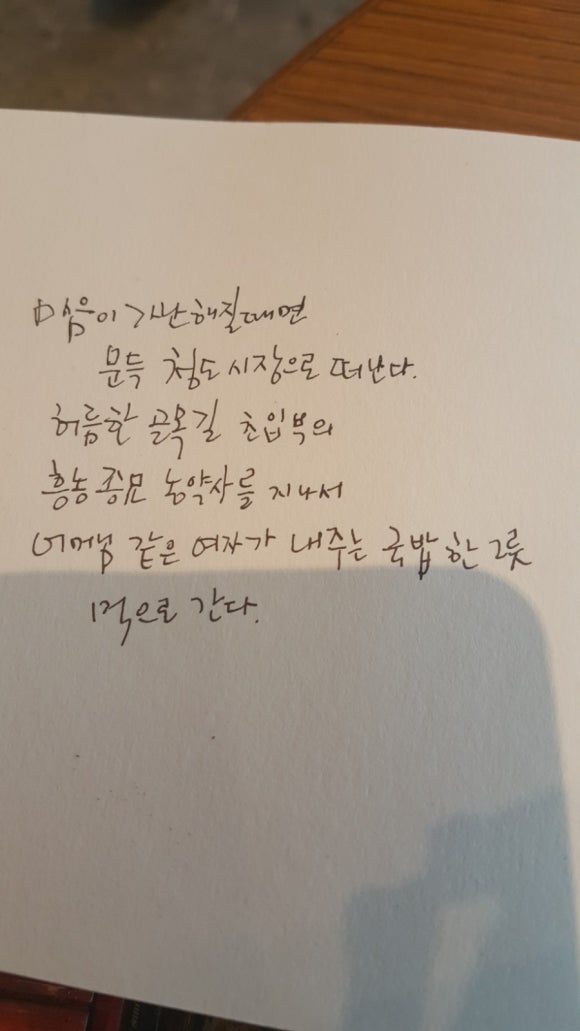 마음이 가난해질때면
문득 청도시장으로 떠난다.
허름한 골목길 초입부의
흥농종묘 농약사를 지나서
어머님 같은 여자가 내주는 국밥 한 그릇
먹으로 간다.